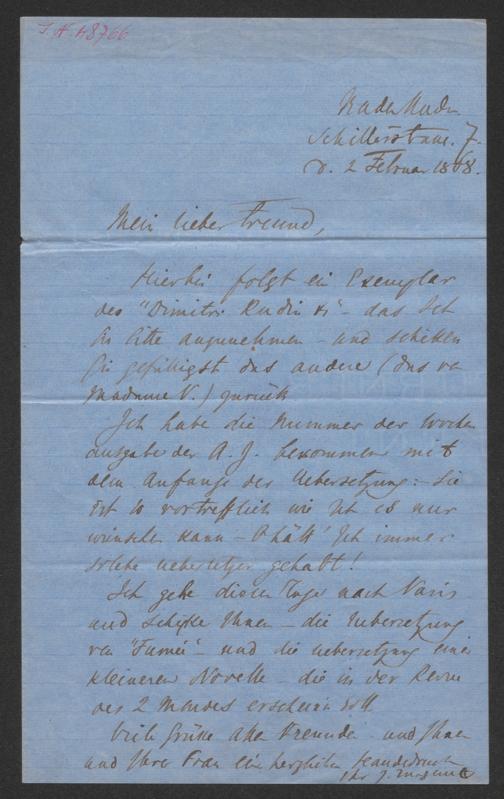 I.N. 48766
Baden Baden
Schillerstrasse 7.
d. 2 Februar 1868.
Mein lieber Freund,
Hierbei folgt ein Exemplar
des "Dimitri Rudin" - das Ich
Sie bitte anzunehmen - und schicken
Sie gefälligst das andere (das von
Madame V.) zurück
Ich habe die Nummer der Wochen
ausgabe der A. Z. bekommen mit
dem Anfange der Uebersetzung: - Sie
ist so vortrefflich wie Ich es nur
wünschen kann - O hätt' Ich immer
solche Uebersetzer gehabt!
Ich gehe dieser Tage nach Paris
und schicke Ihnen - die Uebersetzung
von "Fumée" - und die Uebersetzung einer
kleineren Novelle - die in der Revue
des 2 Mondes erscheinen soll
Viele Grüsse allen Freunden und Ihnen
und Ihrer Frau ein herzlichen Händedruck
Ihr J. Turgeneff